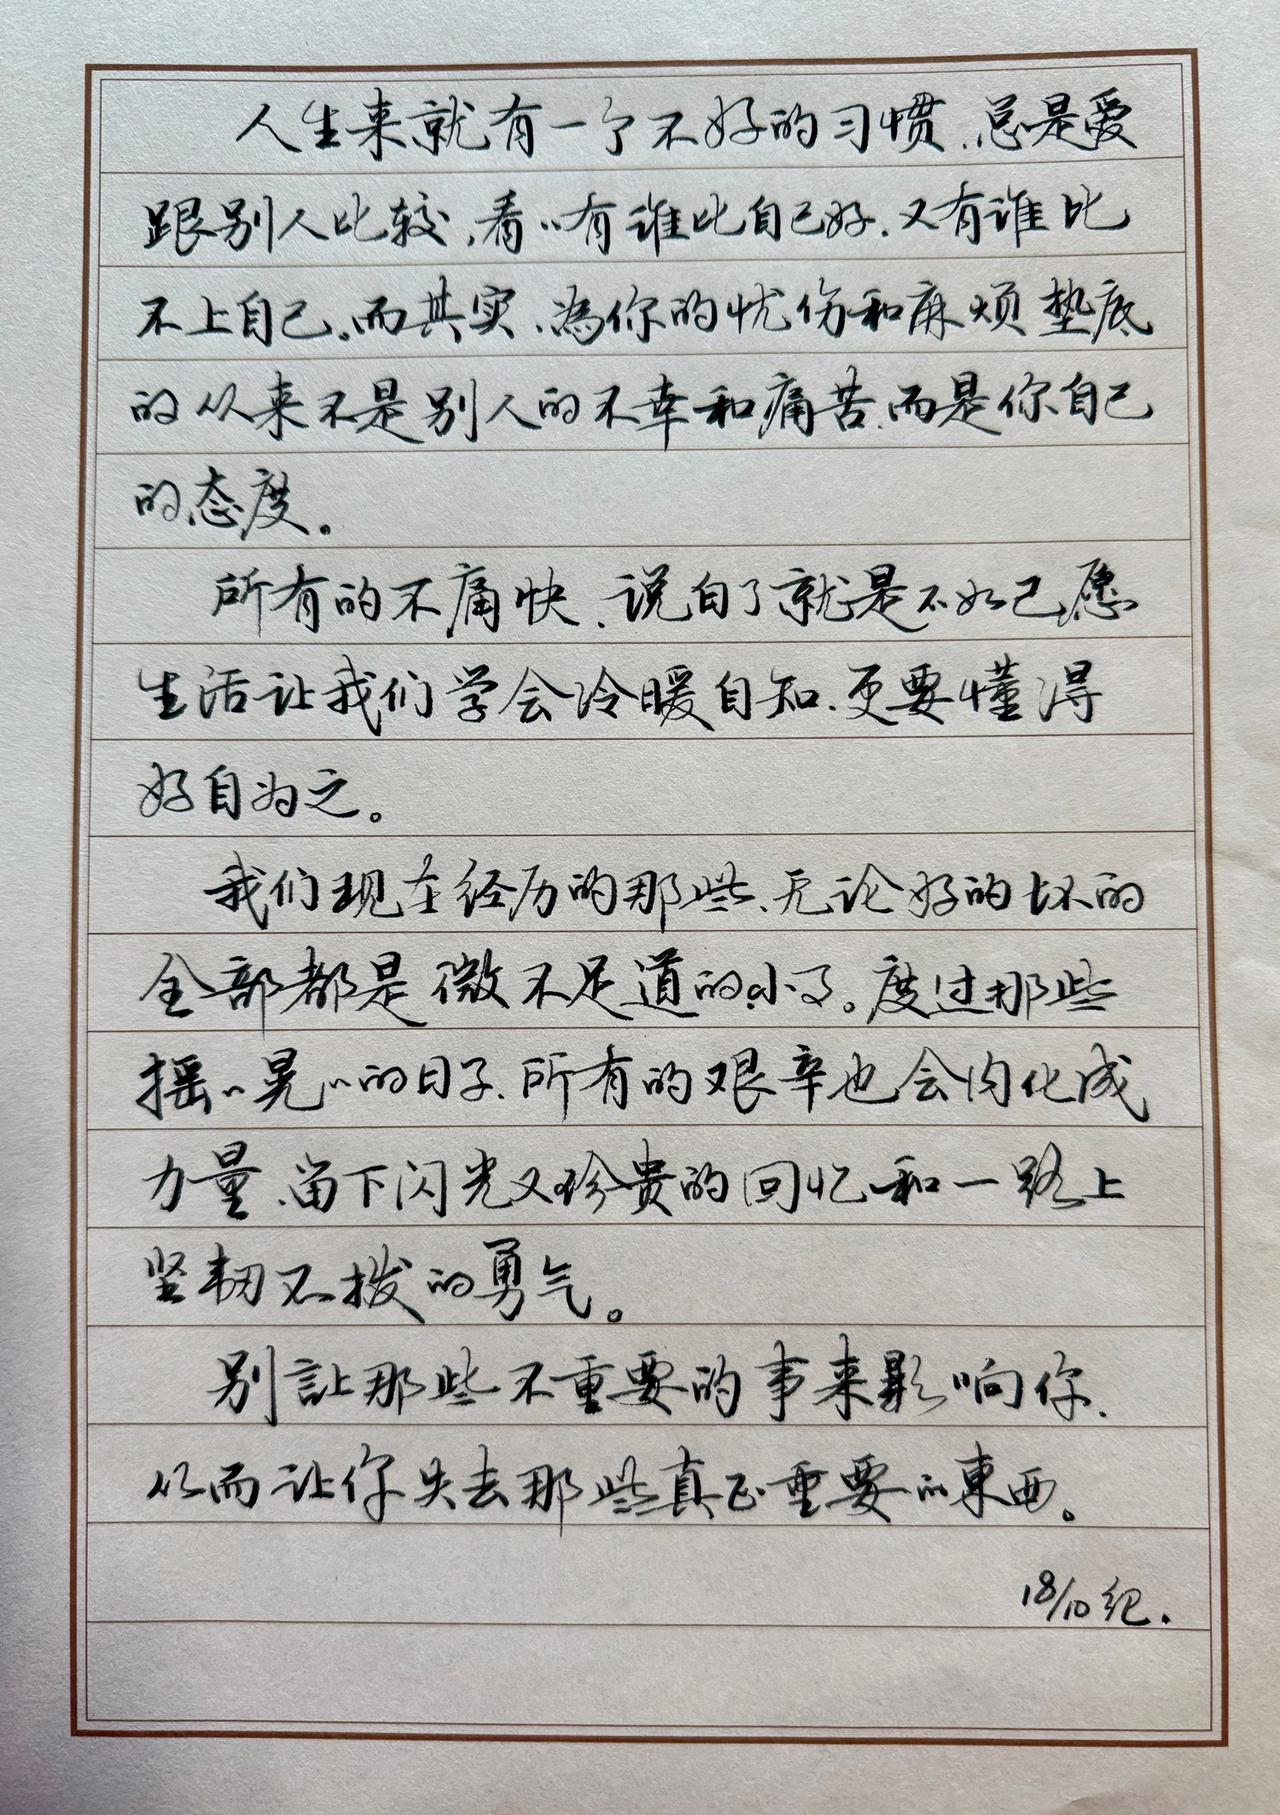 人生来就有一个不好的习惯、总是爱
跟别人比较,看〃有谁比自己好、又有谁比
不上自己。而其实、為你的忧伤和麻烦垫底
的从来不是别人的不幸和痛苦、而是你自己
的态度。
所有的不痛快、说白了就是不如己愿
生活让我们学会冷暖自知、更要懂得
好自为之。
我们现在经历的那些、无论好的坏的
全部都是微不足道的小事。度过那些
摇〃晃〃的日子、所有的艰辛也会内化成
力量、留下闪光又珍贵的回忆和一路上
坚韧不拨的勇气。
别讓那些不重要的事来影响你、
从而让你失去那些真正重要的東西。
18/10纪.